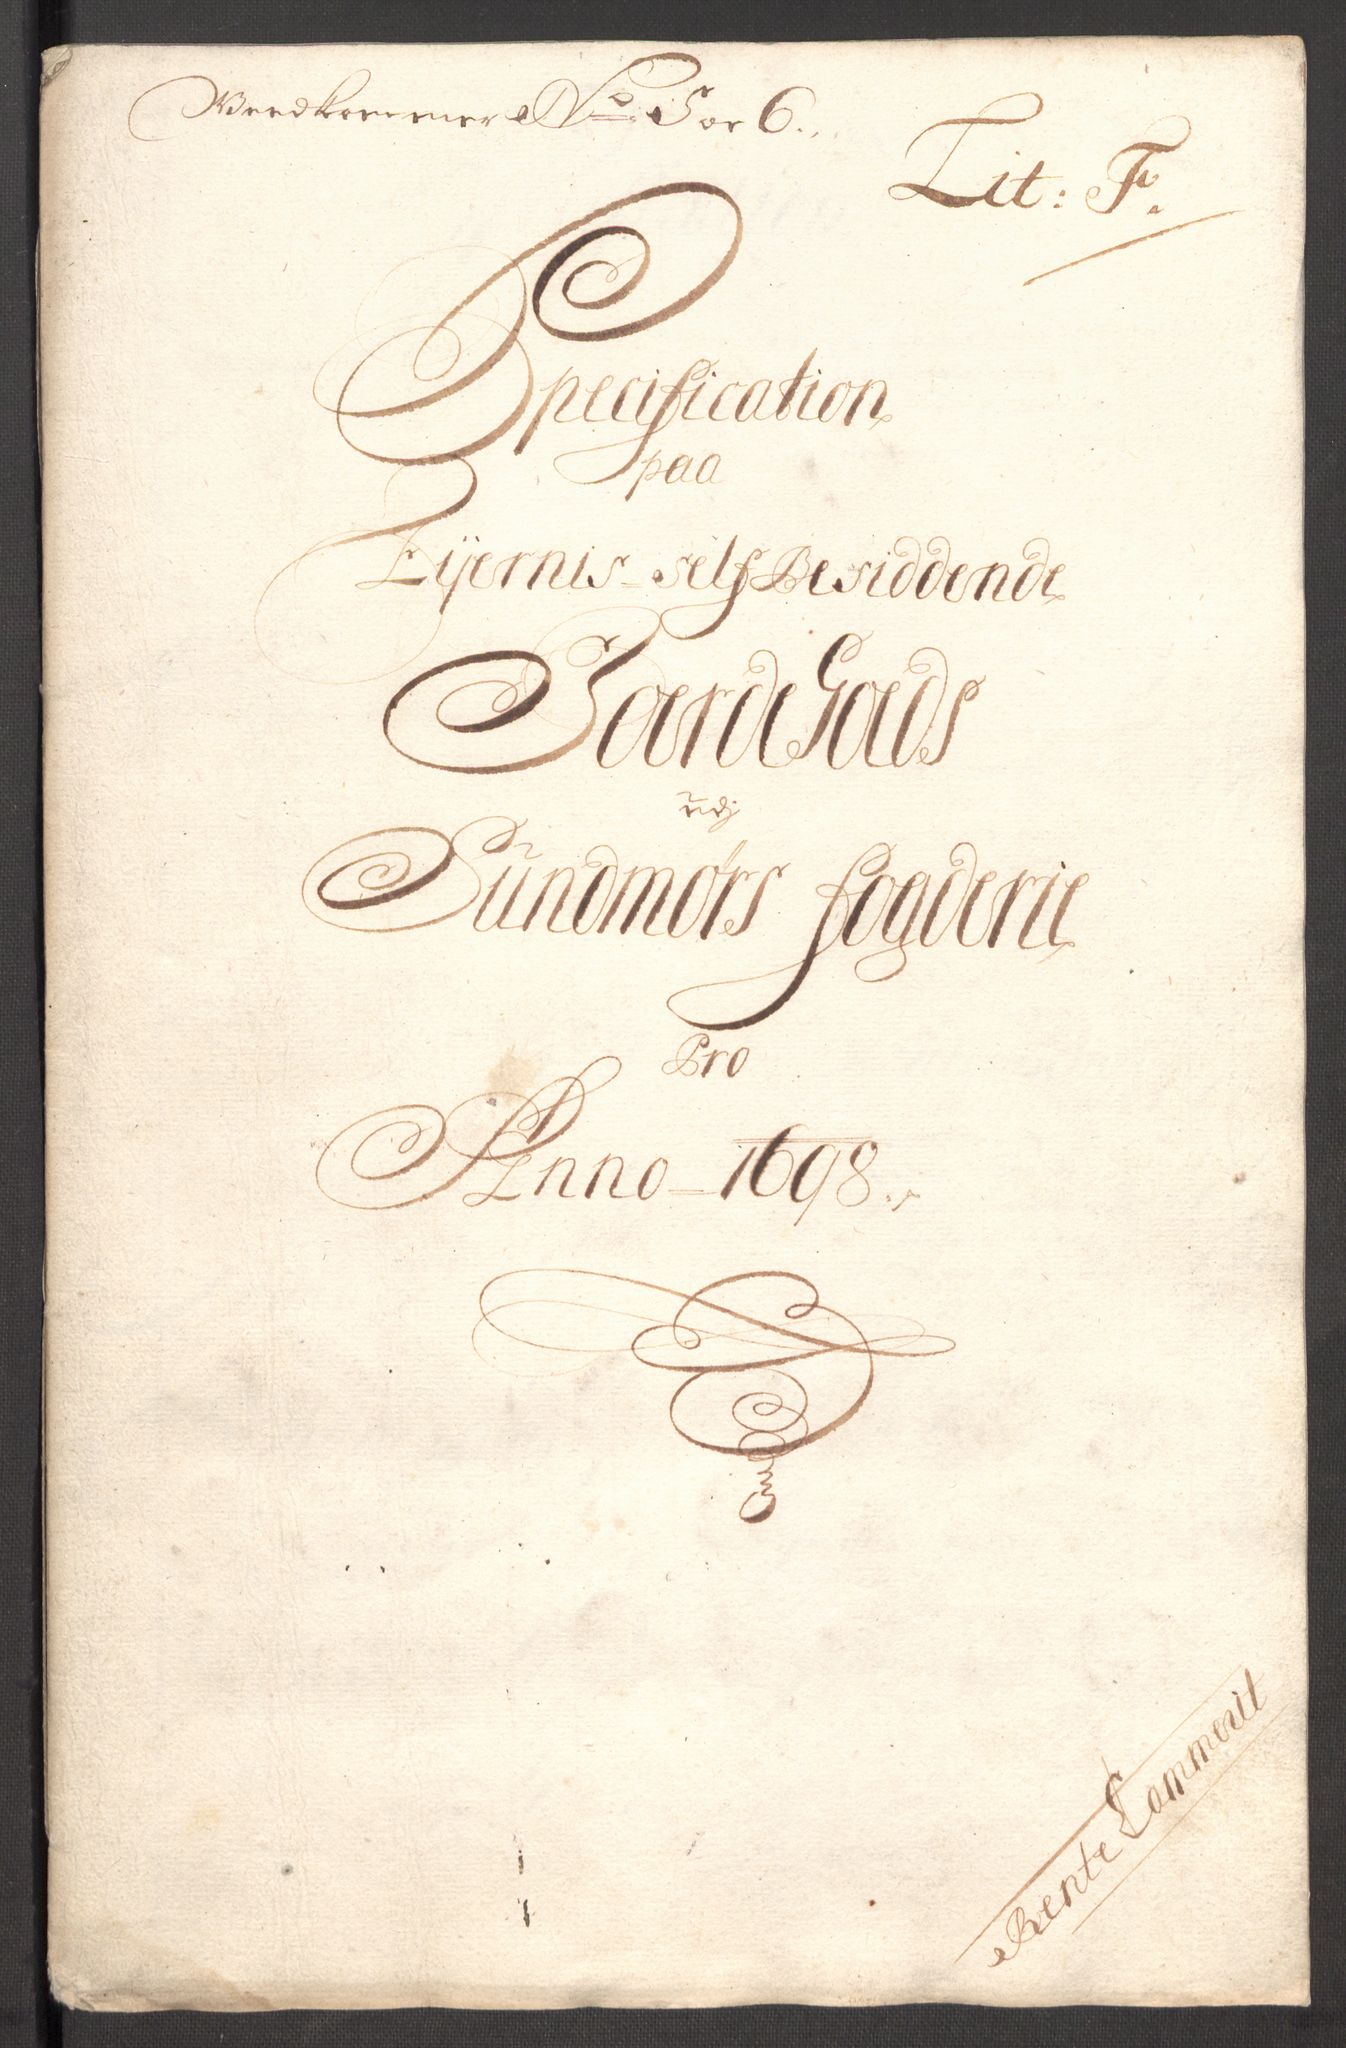 Vedkommer No 5 or 6.
Lit: F.
Specification
paa
Eijernis self Besiddende
JordeGods
udj
Sündmørs fogderie
Pro
Anno 1698.
Rente Cammerit